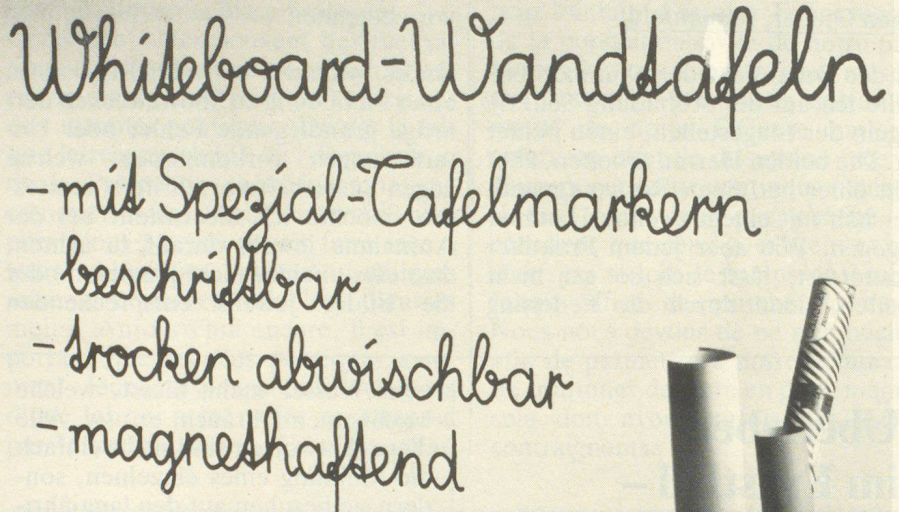 Whiteboard-Wandtafeln
- mit Spezial-Tafelmarkern
beschriftbar
- trocken abwischbar
- magnethaftend